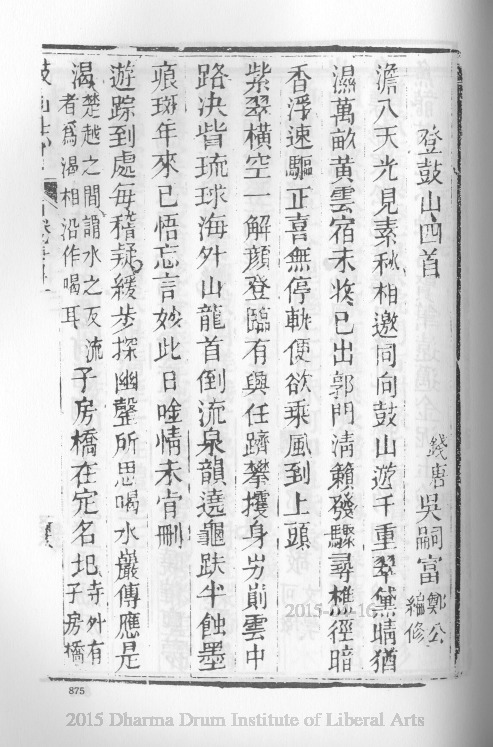 登鼓山四首
錢唐吳嗣富鄭公編修
澹八天光見素秋相邀同向鼓山遊千重翠黛晴猶
濕萬畝黃雲宿未收已出郭門清籟發驟尋樵徑暗
香浮速驅正喜無停軌便欲乘風到上頭
紫翠橫空一解顏登臨有與任躋攀攫身岃崱雲中
路決眥琉球海外山龍首倒流泉韻遶龜趺半蝕墨
痕斑年來已悟忘言妙此日唫情未肯刪
遊踪到處每稽疑緩步探幽罄所思喝水巖傳應是
渴楚越之間謂水之反流
者為渴相沿作喝耳
子房橋在定名圯寺外有
子房橋
875
2015-
-16
2015 Dharma Drum Institute of Liberal Arts